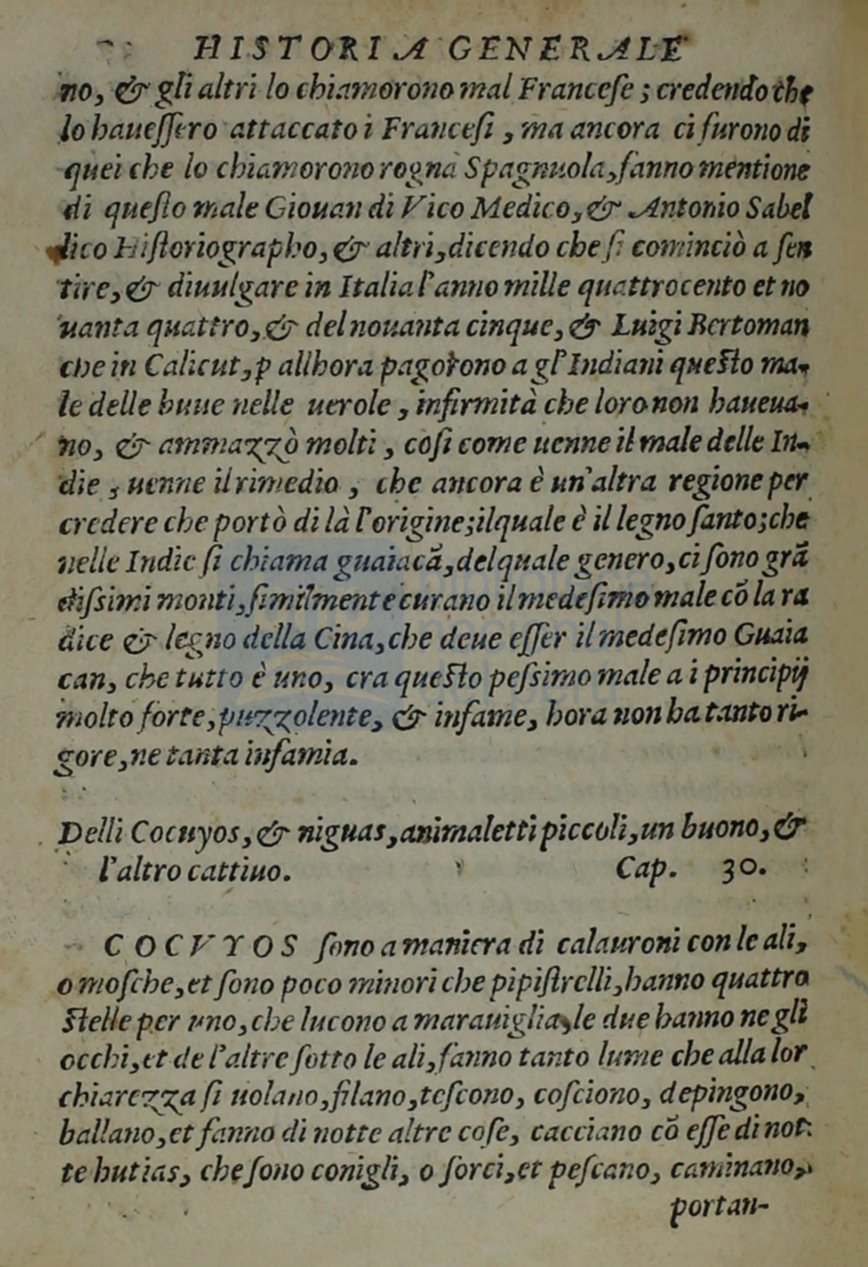 HISTORIA GENERALE
no, & gli altri lo chiamorono mal Franceſe; credendo che
lo haueſſero attaccato i Franceſi, ma ancora ci furono di
quei che lo chiamorono rogna Spagnuola, fanno mentione
di queſto male Giouan di Vico Medico, & Antonio Sabel
lico Hiſtoriographo, & altri, dicendo che ſi cominciò a ſen
tire, & diuulgare in Italia l'anno mille quattrocento et no
uanta quattro, & del nouanta cinque, & Luigi Bertoman
che in Calicut, p allhora pagorono a gl'Indiani queſto ma-
le delle buue nelle uerole, infirmità che loro non haueua-
no, & ammazzò molti, coſi come uenne il male delle In-
die, uenne il rimedio, che ancora è un'altra regione per
credere che portò di là l'origine; ilquale è il legno ſanto; che
nelle Indie ſi chiama guaiacã, delquale genero, ci ſono grã
diſsimi monti, ſimilmente curano il medeſimo male cõ la ra
dice & legno della Cina, che deue eſſer il medeſimo Guaia
can, che tutto è uno, era queſto peſsimo male a i principij
molto forte, puzzolente, & infame, hora non ha tanto ri-
gore, ne tanta infamia.
Delli Cocuyos, & niguas, animaletti piccoli, un buono, &
l'altro cattiuo. Cap. 30.
COCVYOS ſono a maniera di calauroni con le ali,
o moſche, et ſono poco minori che pipiſtrelli, hanno quattro
ſtelle per vno, che lucono a marauiglia, le due hanno ne gli
occhi, et de l'altre ſotto le ali, fanno tanto lume che alla lor
chiarezza ſi uolano, filano, teſcono, coſciono, depingono,
ballano, et fanno di notte altre coſe, cacciano cõ eſſe di not-
te hutias, che ſono conigli, o ſorci, et peſcano, caminano,
portan-